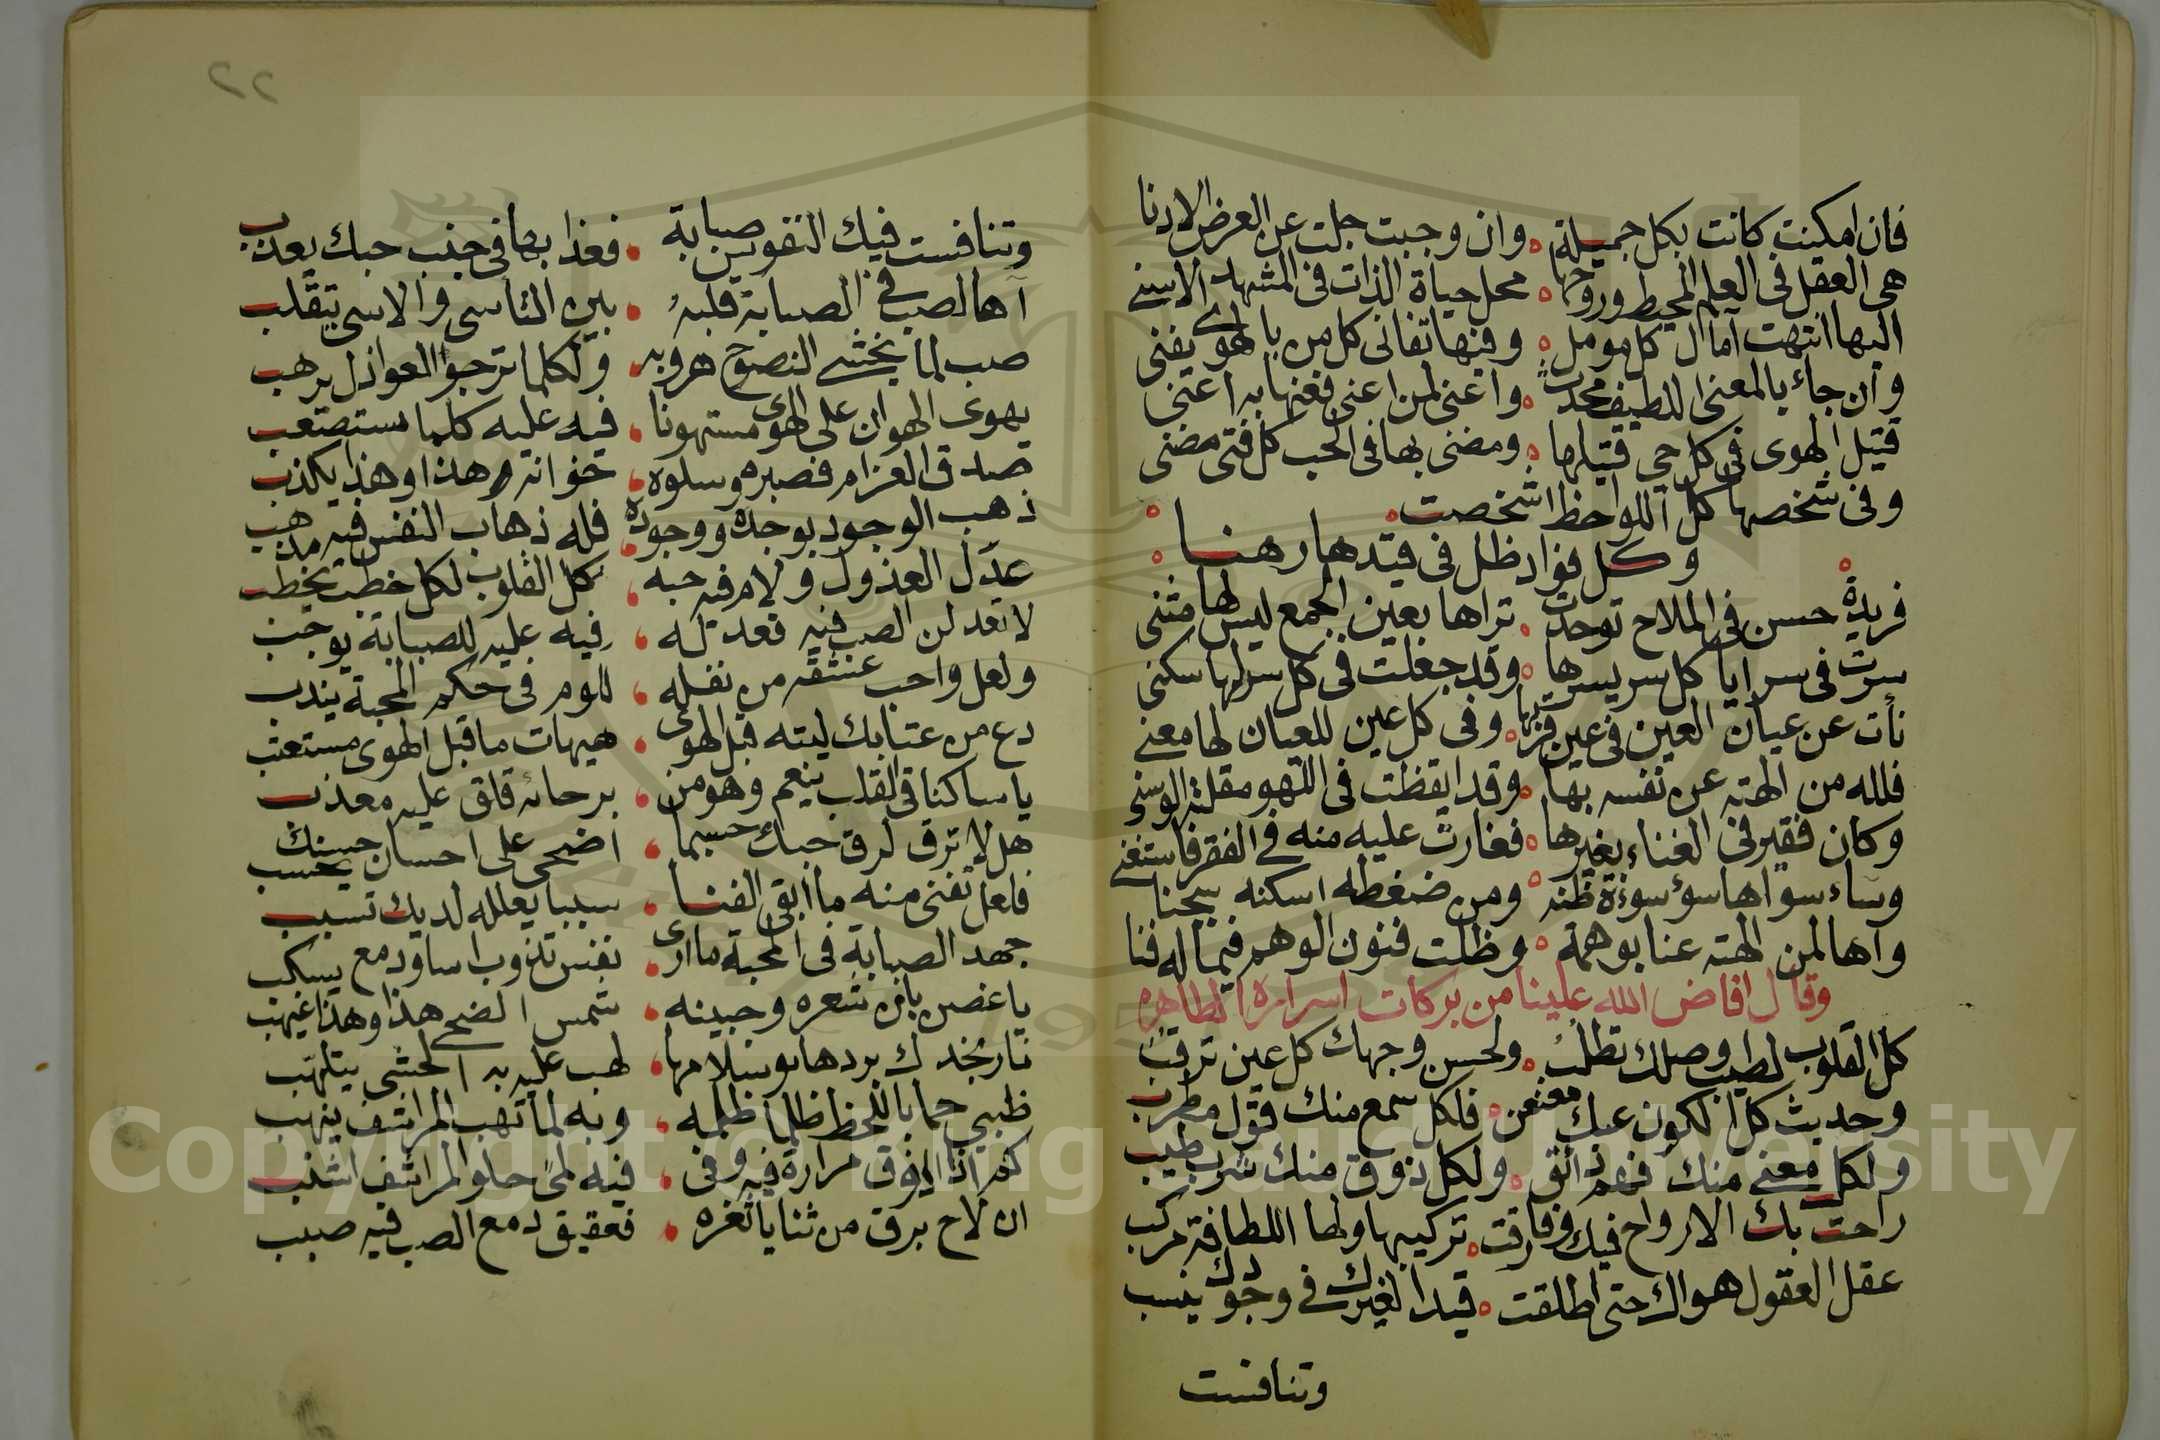 فان امكنت كانت بكل جميلة وان وجبت جلت عن العرض الادنا
هي العقل في العلم المحيط وروحها محل حياة الذات في المشهد الاسنى
اليها انتهت آمال كل مومل وفيها تفانى كل من بالهوى يفنى
وان جاء بالمعنى اللطيف محدث واعنى لمن اعنى فعنها به اعنى
قتيل الهوى في كل حي قتيلها ومضنى بها في الحب كل فتى مضنى
وفي شخصها كل اللواحظ اشخصت
وكل فواد ظل في قيدها رهنا
فريدة حسن في الملاح توحدت تراها بعين الجمع ليس لها مثنى
سرت في سرايا كل سر بسرها وقد جعلت في كل سر لها سكنى
نأت عن عيان العين في عين قربها وفي كل عين للعيان لها معنى
فلله من الهته عن نفسه بها وقد ايقظت في اللهو مقلته الوسنى
وكان فقير في الغناء بغيرها فغارت عليه منه في الفقر فاستغنى
وساء سواها سؤ سوءة ظنه ومن ضغطه اسكنه سجنا
وآها لمن الهته عنا بوهمه وظلت فنون الوهم فيما له فنا
وقال افاض الله علينا من بركات اسراره الطاهره
كل القلوب لطيب وصلك تطلب ولحسن وجهك كل عين ترقب
وحديث كل الكون عنك معنعن فلكل سمع منك قول مطرب
ولكل معنى منك فهم ذائق ولكل ذوق منك شرب طيب
راحت بك الارواح فيك وفارقت تركيبها ولها اللطافة مركب
عقل العقول هواك حتى اطلقت قيدا لغيرك في وجودك ينسب
وتنافست
٢٢
وتنافست فيك النفوس صبابة فعذابها في جنب حبك يعذب
آها لصب في الصبابة قلبه بين التاسى والاسى يتقلب
صب لما يخشى النصوح هروبه ولكلما ترجو العواذل يرهب
يهوى الهوان على الهوى مستهونا فيه عليه كلما مستصعب
صدق الغرام فصبره وسلوه خوانة هذا وهذا يكذب
ذهب الوجود بوجده ووجوده فله ذهاب النفس فيه مذهب
عدل العذول ولام في حبه كل القلوب لكل خطب تخطب
لا تعذلن الصب فيه فعدله فيه عليه للصبابة يوجب
ولعل واجب عشقه من نفله للوم في حكم المحبة يندب
دع من عتابك ليته قبل الهوى هيهات ما قبل الهوى مستعتب
يا ساكنا في القلب ينعم وهو من برحائه قلق عليه معذب
هل لا ترق لرق حبك حسبما اضحى على احسان حسنك يحسب
فلعل تفنى منه ما ابقى الفنا سببا يعلله لديك تسبب
جهد الصبابة في المحبة ما ارى نفس تذوب اسا ودمع يسكب
يا غصن بان شعره وجبينه شمس الضحى هذا وهذا غيهب
نار بخدك بردها وسلامها لهب عليه به الحشى يتلهب
ظبي حما باللحظ ظلما ظلمه وبه لما تهب المراشف ينهب
كم اذا الذوق مرارة فيه وفي فيه لمى حلو المراشف اشنب
ان لاح برق من ثنايا ثغره فعقيق دمع الصب فيه صيب
Copyright © King Saud University
1957